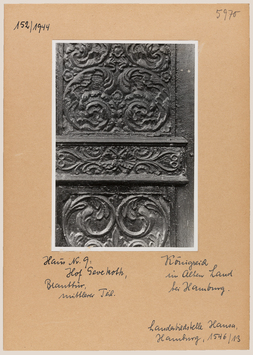 152/1944
5970
Haus Nr. 9.
Hof Gevekoth,
Brauttür,
mittlerer Teil.
Königreich
im Alten Land
bei Hamburg.
Landesbildstelle Hansa,
Hamburg, 1546/13